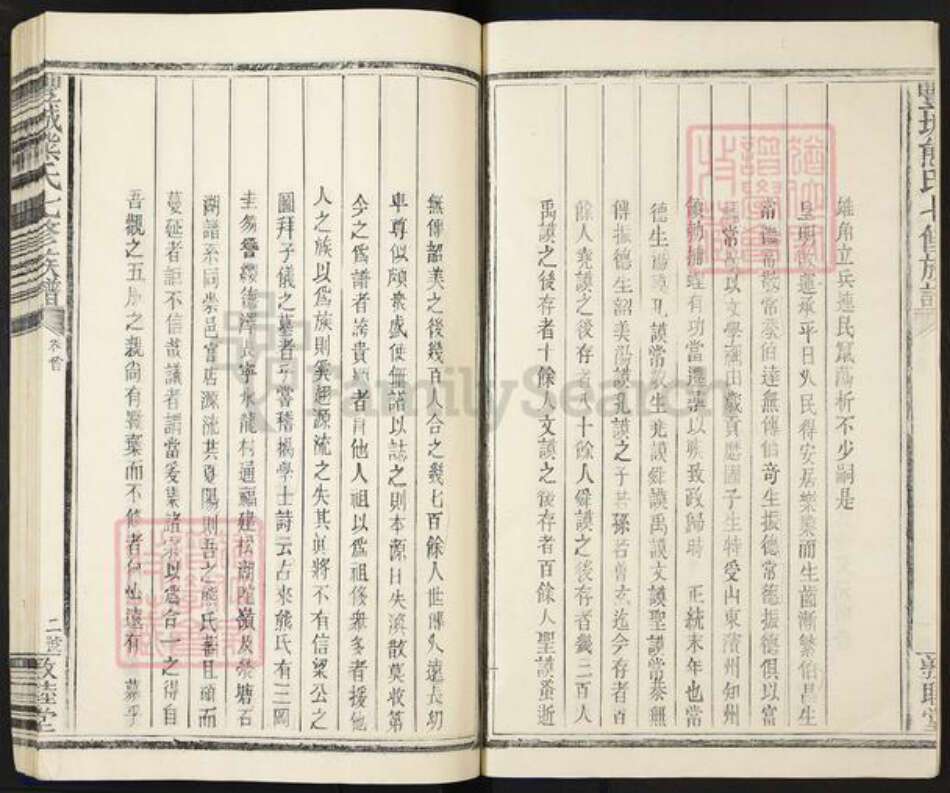 豐城熊氏七修族譜
雄角立兵連民竄蕩析不少嗣是
皇明啟運承平日久民得安居樂業而生齒漸繁伯昌生
常 常敬常泰伯達無傳伯奇生振德常德振德俱以富
常 以文學 由歲貢歷國子生特受山東濱州知州
捕蝗有功當遷 以疾致政歸時 正統末年也常
德生 謨孔謨常敬生堯謨舜謨禹謨文謨聖謨常泰無
傳振德生韶美陽謨孔謨之子若孫若曾玄迄今存者百
餘人堯謨之後存者八十餘人舜謨之後存者幾二百人
禹謨之後存者十餘人文謨之後存者百餘人聖謨蚤逝
敦睦堂
無傳韶美之後幾百人合之幾七百餘人世傳久遠長幼
卑尊似頗衆盛使無譜以誌之則本源日失渙散莫收第
今之為譜者誇貴顯者冐他人祖以為祖侈衆多者援他
人之族以為族則義廼源流之失其眞將不有信梁公之
圖拜子儀之墓者乎嘗稽揭學士詩云占來熊氏有三岡
圭昜 德澤長寧水龍村通福建松湖陀嶺及欒塘石
湖譜系同崇邑官店源流其夏陽則吾之熊氏蕃且碩而
蔓延者詎不信哉議者謂當爰集諸宗以為合一之得自
吾觀之五服之親尚有 棄而不修者何 遠有 慕乎
豐城熊氏七修族譜
卷首
二
敦睦堂
FamilySearch